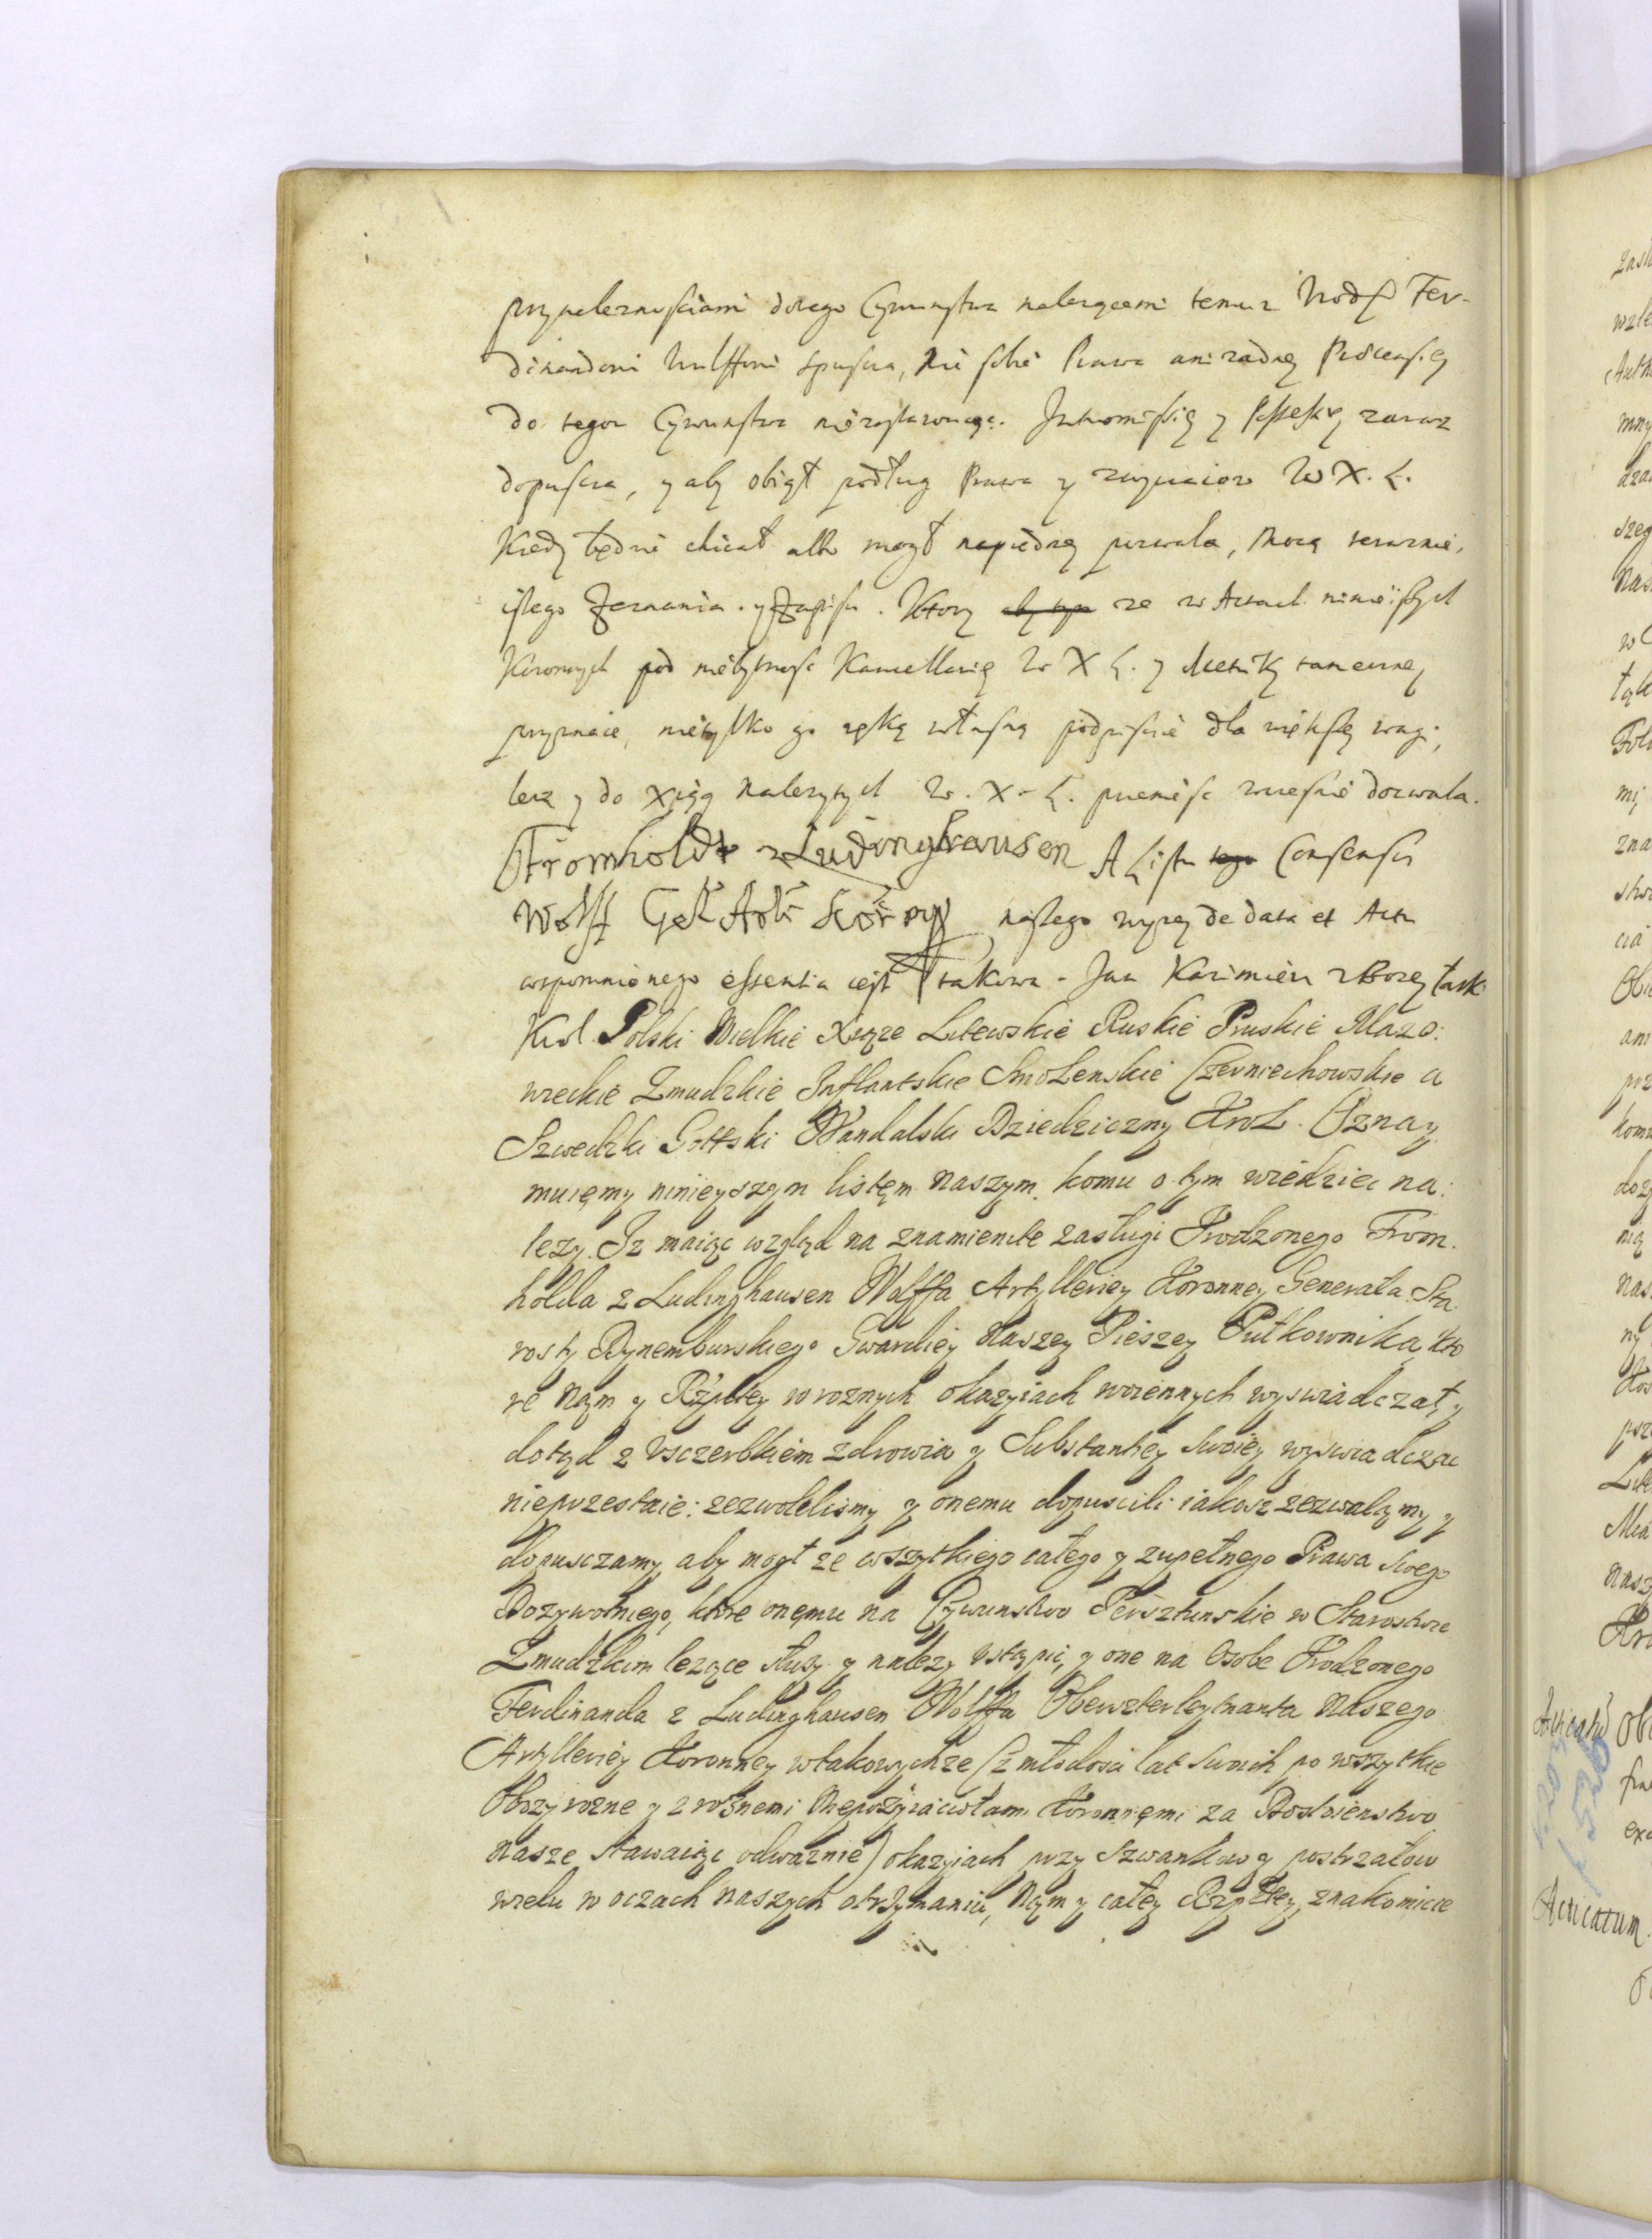 przynaleznosciami dotego Cywunstwa nalezącemi temuz Urodz Fer-
dinandowi Wulffowi spuscza, nic sobie Prawa ani zadney Pretensiey
do tego Cywunstwa niezostawuiąc. Intromissię y Possessię zaraz
dopuscza, y aby obiął podług Prawa y zwyczaiow W X. L.
Kiedy będzie chciał albo mogł naprędzey pozwala, mocą teraznie,
iszego Zeznania y Zapisu. Ktory ze w Actach ninieiszych
Koronnych pod niebytnosc Kancellarię W X L. y Metriki tameczney
przyznaie, nietylko go ręką własną podpisuie dla większey wagi,
lecz y do Xiąg nalezytych W. X. L. przeniesc wczesnie dozwala.
Fromholdt z Ludinghausen A Listu Consensu
Wolff Gen Art Korony naszego wyzey de data et Actu
wspomnionego essentia iest takowa. Jan Kazimierz z Bozey łaski
Krol Polski Wielkie Xiąze Litewskie Ruskie Pruskie Mazo:
wieckie Zmudzkie Inflantskie Smolenskie Czerniechowskie a
Szwedzki Gottski Wandalski Dziedziczny Krol. Oznay
muięmy ninieyszym listęm naszym, komu o tym wiedziec na:
lezy. Iz maiąc wzgląd na znamienite zasługi Urodzonego From
holda z Ludinghausen Wolffa Artylleriey Koronney Generała Sta
rosty Dynemburskiego Gwardiey Naszey Pieszey Pułkownika, kto
re Nąm y Rzptey w roznych okazyiach woiennych wyswiadczał, y
dotąd z Usczerbkiem zdrowia y Substantiey Swoiey wyswiadczac
nieprzestaie: zezwolilismy y onemu dopuscili iakosz zezwalamy y
dopusczamy, aby mogł ze wszytkiego całego y zupełnego Prawa Swego
Dozywotniego, ktore onęmu na Cywunstwo Perszłunskie w Starostwie
Zmudzkim lezące słuzy y nalezy ustąpic, y one na Osobe Urodzonego
Ferdinanda z Ludinghausen Wolffa Oberszterleytnanta Naszego
Artylleriey Koronney w takowychze (z młodosci lat Swoich po wszytkie
Obozy rozne y z roznemi Nieprzyiaciołami Koronnęmi za Dostoienstwo
Nasze stawaiąc odwaznie) okazyiach przy Szwankow y postrzałow
wielu w oczach naszych otrzymaniu, Nąm y całey Rzptey, znakomicie
Acticatum